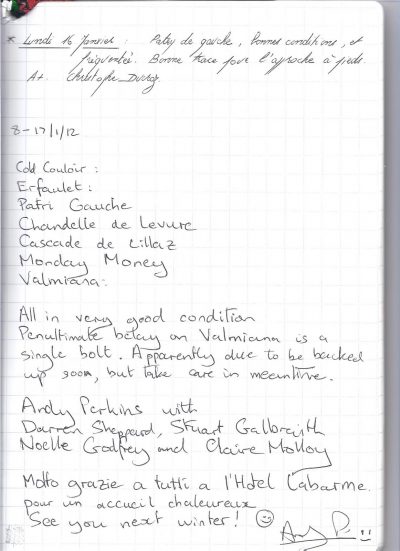 * Lundi 16 Janvier : Patry de gauche, bonnes conditions, et
fréquentée. Bonne trace pour l'approche à pieds.
A+ Christophe
8-17/1/12
Cold Couloir :
Erfaulet :
Patri Gauche
Chandelle de Levure
Cascade de Lillaz
Monday Money
Valmiana:
All in very good condition
Penultimate belay on Valmiana is a
single bolt. Apparently due to be backed
up soon, but take care in meantime.
Andy Perkins with
Darren Sheppard, Stuart Galbraith
Noelle Godfrey and Claire Molloy
Molto grazie a tutti a l'Hotel Labarme.
pour un accueil chaleureux
See you next winter! ☺
Andy P.